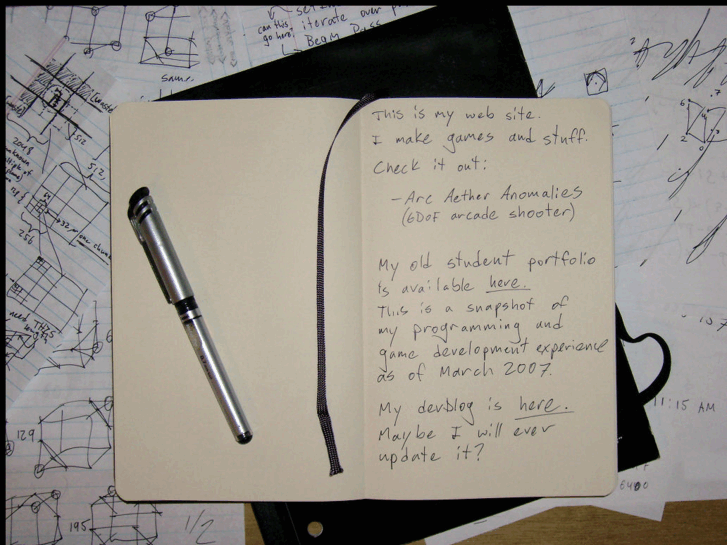 set
can this iterate over
go here
Beam Pass
same.
This is my web site.
I make games and stuff.
Check it out:
-Arc Aether Anomalies
(6DoF arcade shooter)
My old student portfolio
is available here.
This is a snapshot of
my programming and
game development experience
as of March 2007.
My devblog is here.
Maybe I will ever
update it?
512
2048
256
need
129
195
1/2
11:15 AM
6400